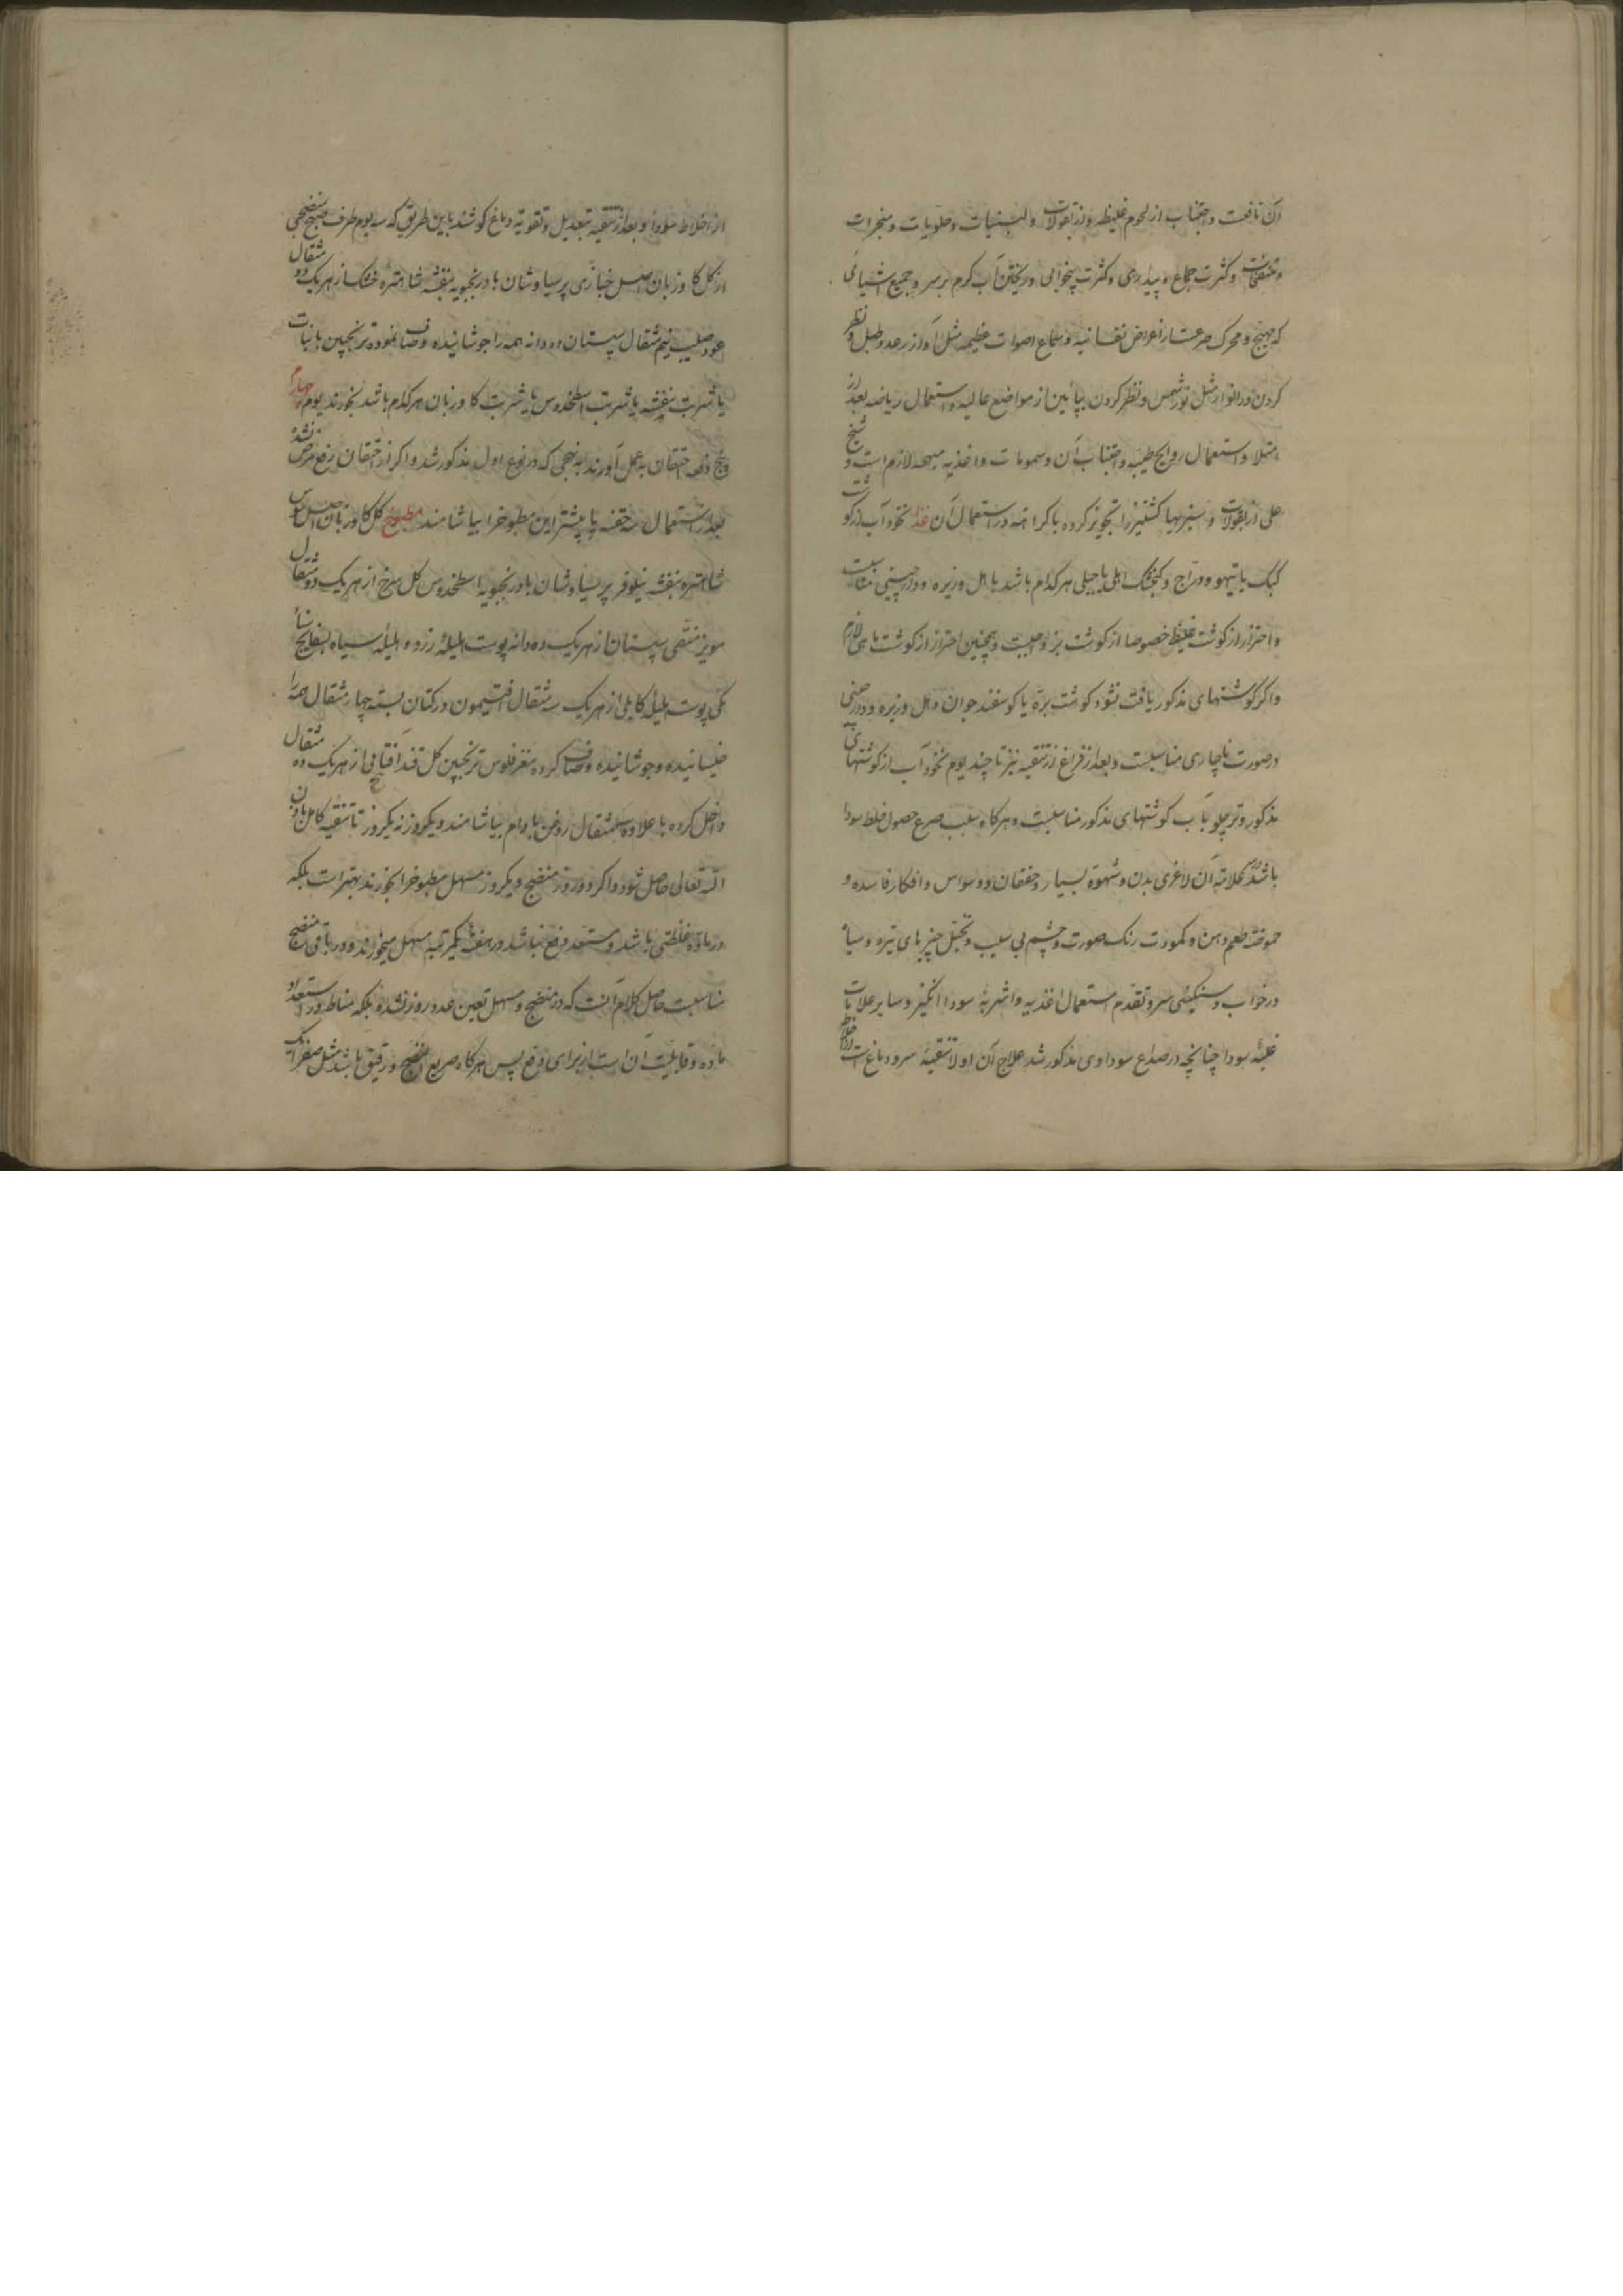 آن نافعست و اجتناب از لحوم غلیظه و از بقولات و لبنیات و حلویات و مبخرات
و منفخات و کثرت جماع و بیداری و کثرت بیخوابی و ریختن آب کرم بر سر و جمیع اشیائی
که مهیج و محرک صرعست از اعراض نفسانیه و سماع اصوات عظیمه مثل آواز رعد و طبل و نظر
کردن در انوار مثل نور شمس و نظر کردن بپایین از مواضع عالیه و استعمال ریاضه بعد از
امتلا و استعمال روایح طیبه و اجتناب آن و سمومات و اغذیه لازم است و شیخ
علی از بقولات و سبزیها کشنیز را تجویز کرده با کراهته در استعمال آن غذا نخود آب از کوشت
کبک یا تیهو و دراج و کنجشک اهلی یا جبلی هر کدام باشد با هل و زیره و دارچینی مناسبست
و احتراز از کوشت غلیظ خصوصا از کوشت بز واجبست و همچنین احتراز از کوشت ماهی لازم
و اکر کوشتهای مذکور یافت نشود کوشت بره یا کوسفند جوان و هل و زیره و دارچینی
در صورت ناچاری مناسبست و بعد از فراغ از تنقیه نیز تا چند یوم نخود آب از کوشتهای
مذکور و تر چلو با آب کوشتهای مذکور مناسبست و هرکاه سبب صرع حصول خلط سودا
باشد علامة آن لاغری بدن و شهوة بسیار و خفقان و وسواس و افکار فاسده و
حموضة طعم دهن و کمودت رنک صورت و چشم بی سبب و تخیل چیزهای تیره و سیاه
در خواب و سنکینی سر و تقدم استعمال اغذیه و اشربه سودا انکیز و سایر علامات
غلبه سودا چنانچه در صداع سوداوی مذکور شد علاج آن اولا تنقیه سر و دماغ است
از اخلاط سودا و بعد از تنقیه تبعدیل و تقویة دماغ کوشند باین طریق که سه یوم طرف صبح منضجی
از کل کاوزبان اصل خبازی پرسیاوشان بادرنجبویه بنفشه شاهتره خشک از هر یک دو مثقال
عود صلیب نیم مثقال سپستان ده دانه همه را جوشانیده و صاف نموده ترنجبین یا نبات
یا شربت بنفشه یا شربت اسطخدوس یا شربت کاوزبان هر کدام باشد بخورند یوم چهارم
و پنج دفعه احتقان بعمل آورند بنهجی که در نوع اول مذکور شد و اکر از احتقان رفع مرض نشد
بعد از استعمال سه حقنه یا بیشتر این مطبوخرا بیاشامند مطبوخ کل کاوزبان اصل سوس
شاهتره بنفشه نیلوفر پرسیاوشان بادرنجبویه اسطخدوس کل سرخ از هر یک دو مثقال
مویز منقی سپستان از هر یک ده دانه پوست هلیله زرد و هلیله سیاه بسفایج سنا
مکی پوست هلیله کابلی از هر یک سه مثقال افتیمون در کتان بسته چهار مثقال همه را
خیسانیده و جوشانیده و صاف کرده مغز فلوس ترنجبین کل قند آفتابی از هر یک ده مثقال
داخل کرده با علاوه نیممثقال روغن بادام بیاشامند و یکروز نه یکروز تا تنقیه کامل باذن
الله تعالی حاصل شود و اکر دو روز منضج و یکروز مسهل مطبوخرا بخورند بهتر است بلکه
در ماده غلظتی باشد و مستعد دفع نباشد در هفته یکمرتبه مسهل میخورند و در باقی منضج
مناسبست حاصل کلام آنست که در منضج و مسهل تعین عدد روز نشده بلکه مناط در استعداد
ماده و قابلیت آن است از برای دفع پس هرکاه سریع النضج و رقیق باشد مثل صفرا